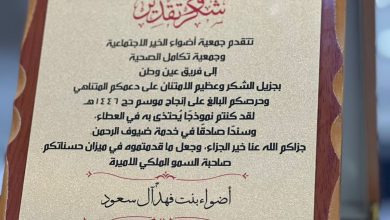 شكر وتقدير
تتقدم جمعية أضواء الخير الاجتماعية
وجمعية تكامل الصحية
إلى فريق عين وطن
بجزيل الشكر وعظيم الامتنان على دعمكم المتناهي
وحرصكم البالغ على إنجاح موسم حج ١٤٤٦هـ
لقد كنتم نموذجًا يُحتذى به في العطاء،
وسندًا صادقًا في خدمة ضيوف الرحمن
جزاكم الله عنا خير الجزاء، وجعل ما قدمتموه في ميزان حسناتكم
صاحبة السمو الملكي الأميرة
أضواء بنت فهد آل سعود